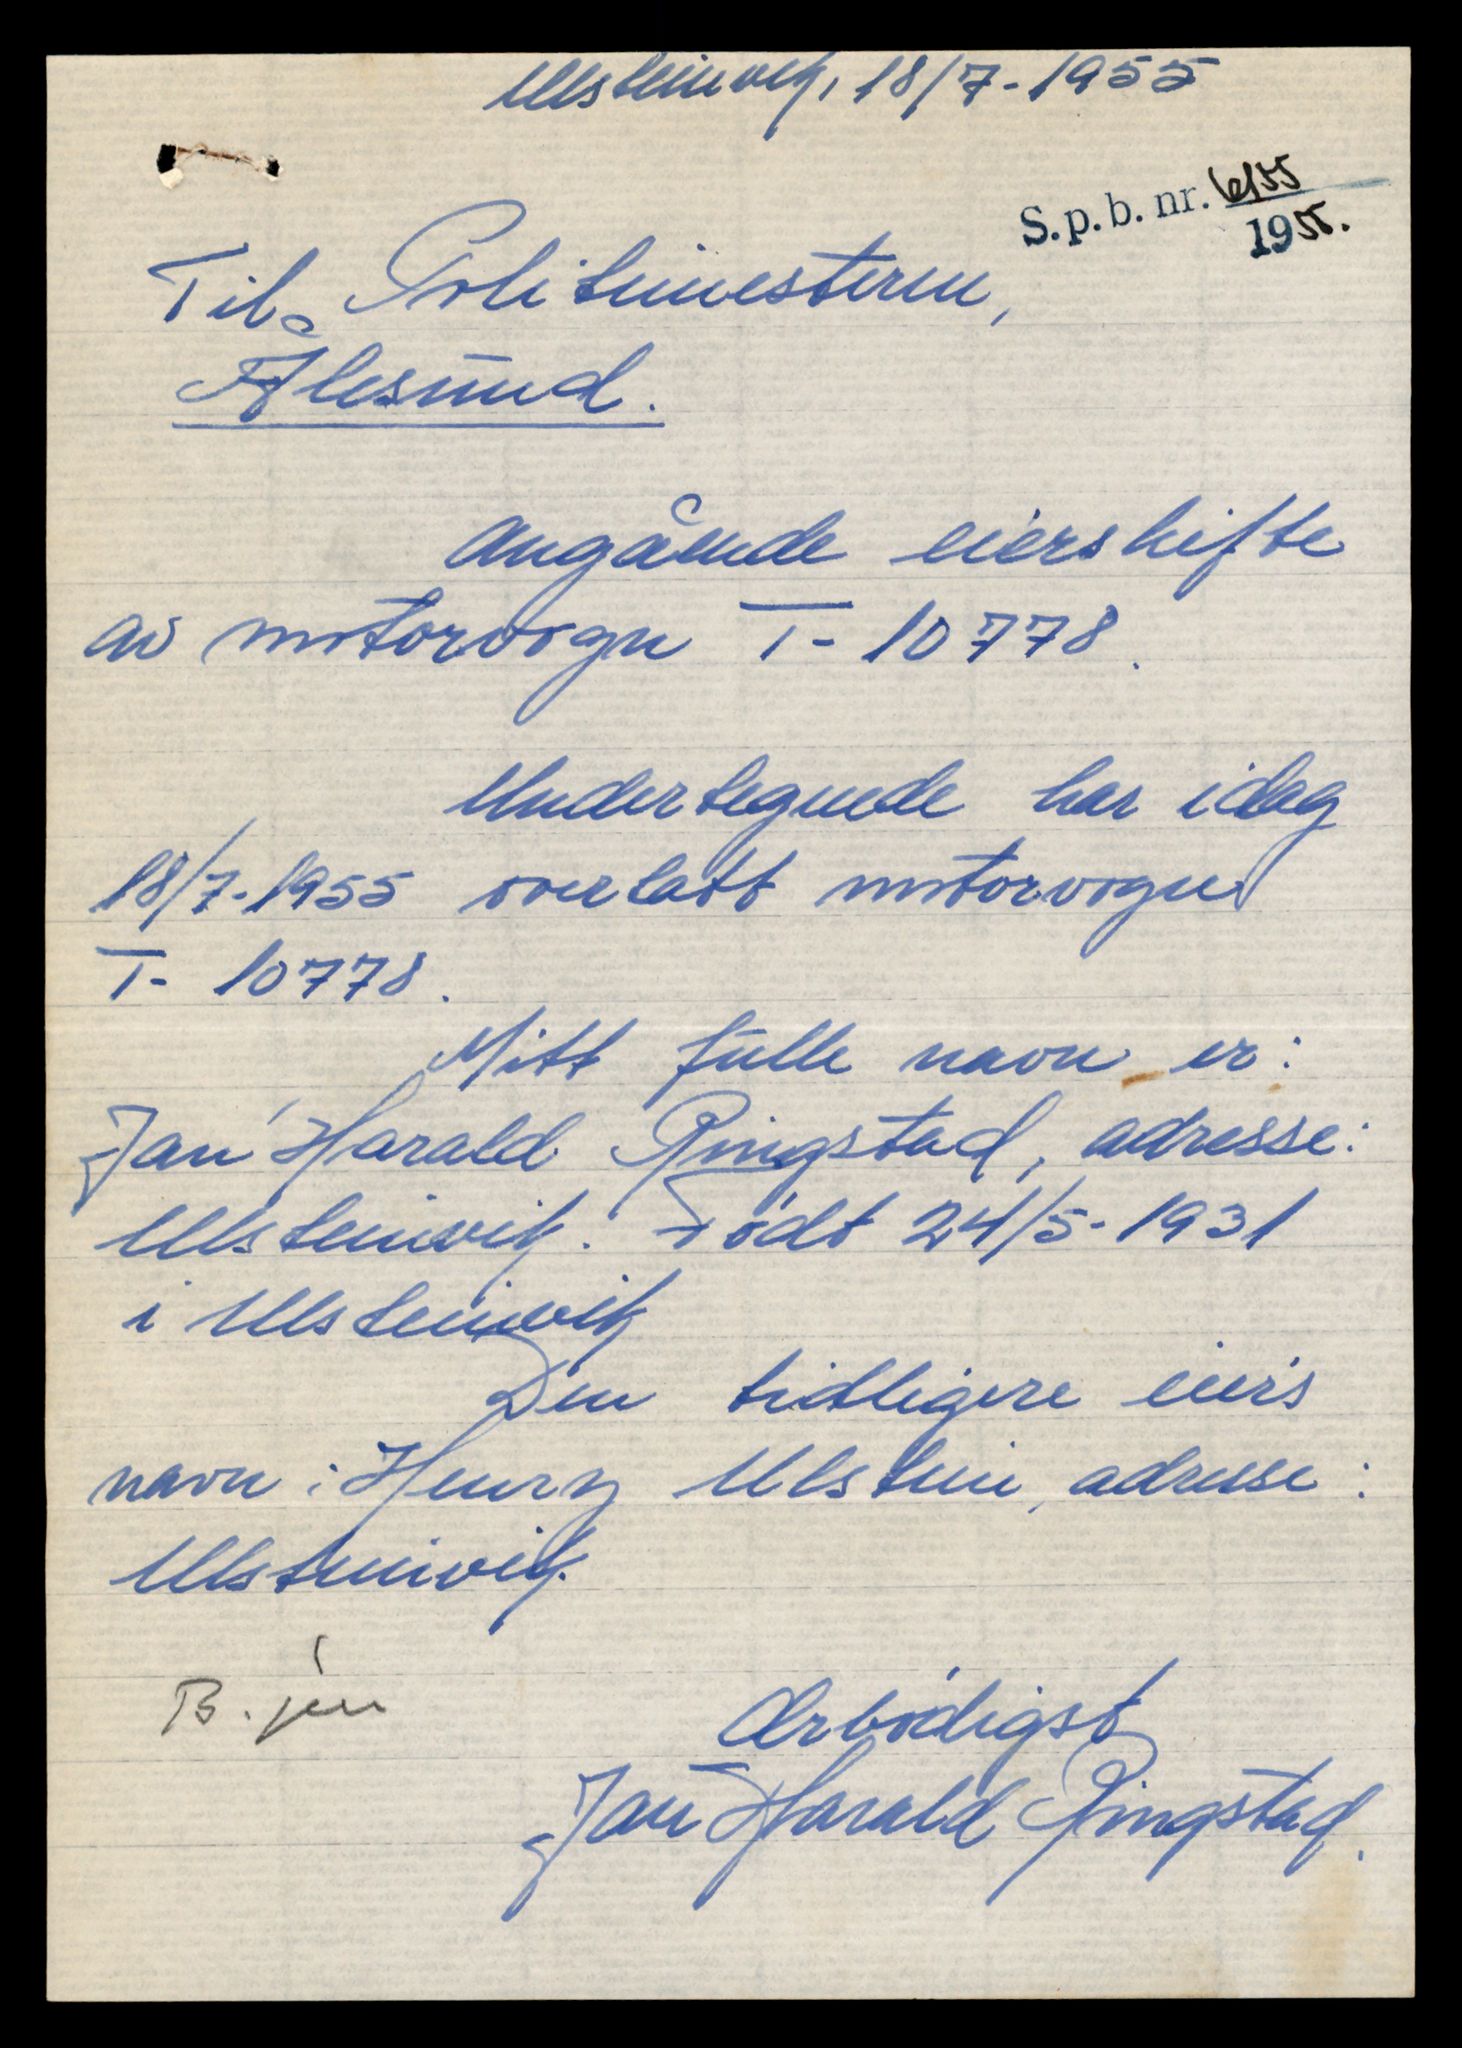 Ulsteinvik, 18/7-1955
S.p.b. nr.
1955.
Til Politimesteren,
Ålesund.
Angående eierskifte
av motorvogn T-10778.
Undertegnede har idag
18/7-1955 overlatt motorvogn
T-10778.
Mitt fulle navn er:
Jan Harald Ringstad, adresse:
Ulsteinvik. Født 24/5-1931
i Ulsteinvik
Den tidligere eiers
navn: Henry Ulstein, adresse:
Ulsteinvik.
Ærbødigst
Jan Harald Ringstad.